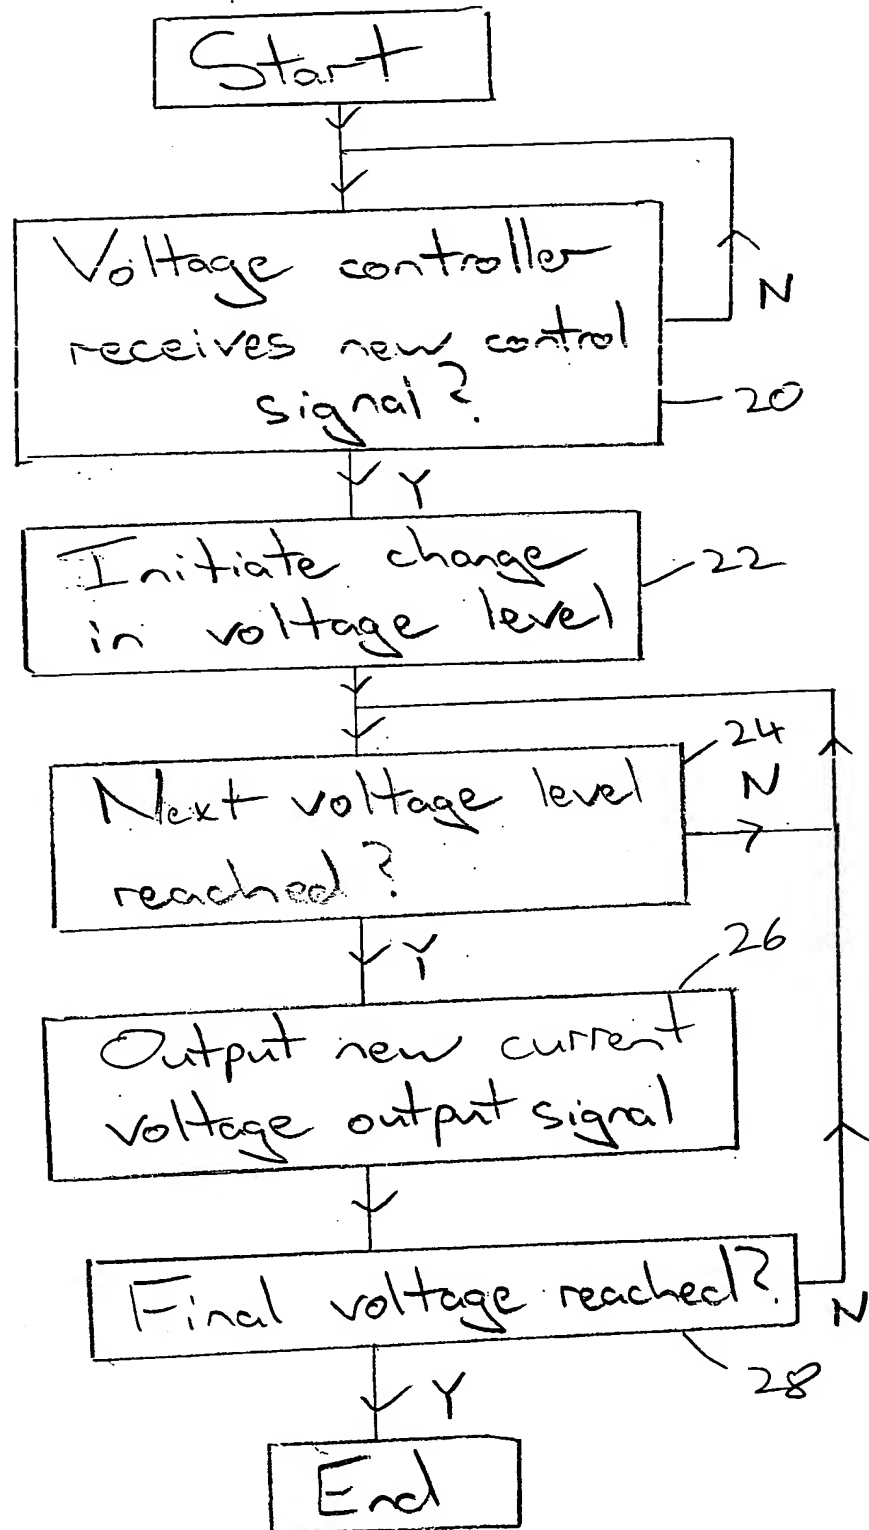 Start
Voltage controller
receives new control
signal?
N
20
Y
Initiate change
in voltage level
22
Next voltage level
reached?
24
N
Y
26
Output new current
voltage output signal
Final voltage reached?
N
28
Y
End